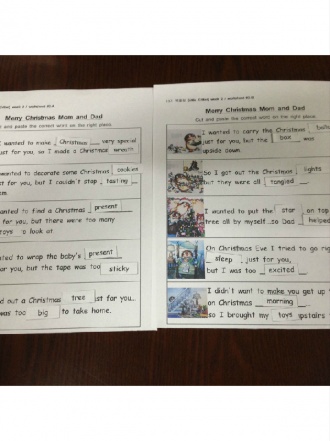 Merry Christmas Mom and Dad
Cut and paste the correct word on the right place.
I wanted to make Christmas very special
just for you, so I made a Christmas wreath
wanted to decorate some Christmas cookies
just for you, but I couldn't stop tasting
wanted to find a Christmas present
for you, but there were too many
toys to look at.
wanted to wrap the baby's present
for you, but the tape was too sticky
out a Christmas tree just for you,
was too big to take home.
week 2 / sentence 10-6
Merry Christmas Mom and Dad
Cut and paste the correct word on the right place.
I wanted to carry the Christmas
just for you, but the box was
upside down.
So I got out the Christmas lights
but they were all tangled
I wanted to put the star on top
Tree all by myself so Dad helped
On Christmas Eve I tried to go right
sleep just for you,
but I was too excited
I didn't want to make you get up
on Christmas morning
so I brought my toys upstairs